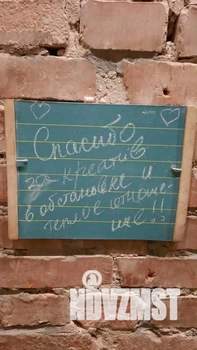 Спасибо
за креатив
в обстановке и
теплое отноше-
ние!!
NDVZMST